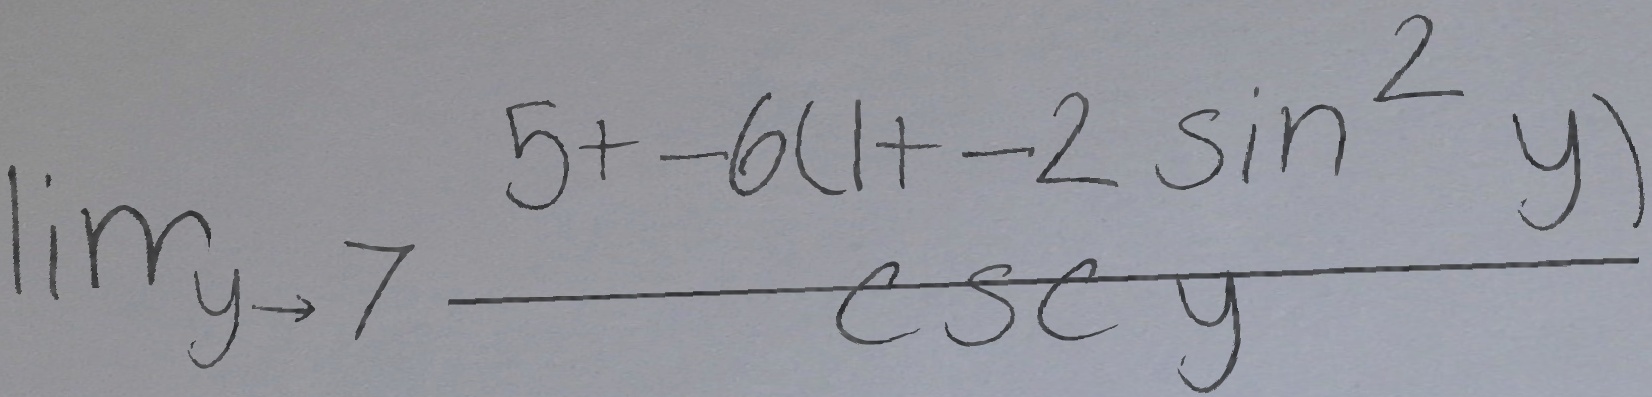 \lim_{y \to 7} \frac{5+-6(1+-2 \sin^2 y)}{\csc y}